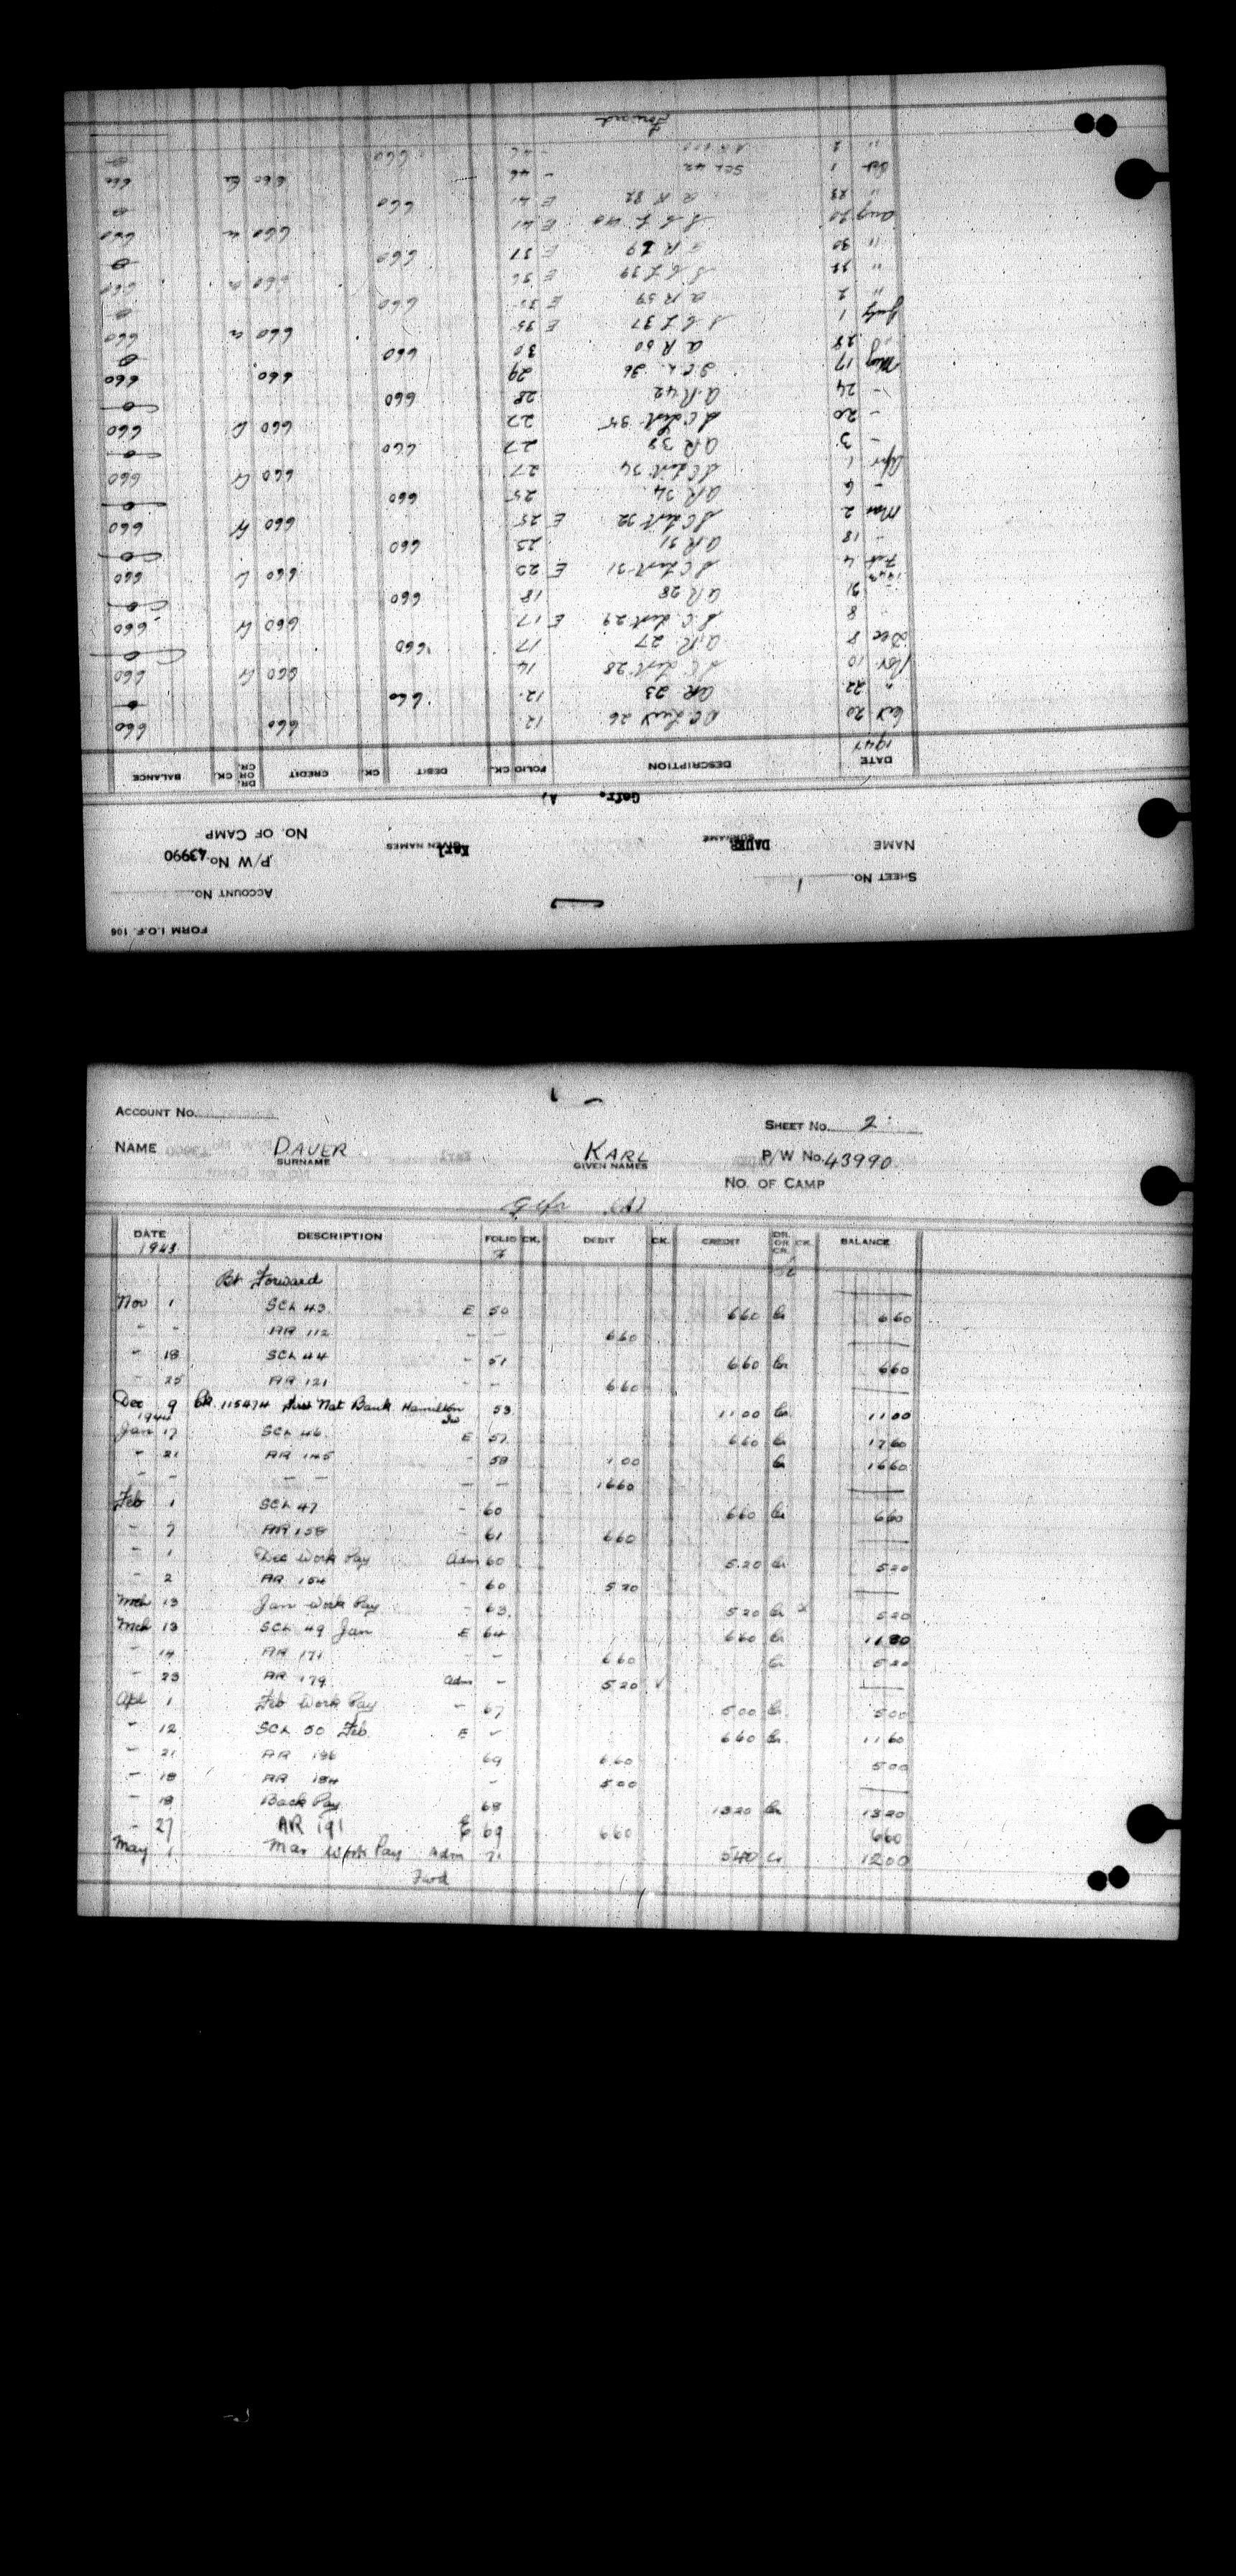 FORM I.O.F. 106
ACCOUNT No.
SHEET No. 1
P/W No. 43990
NAME DAUER Karl
SURNAME GIVEN NAMES
NO. OF CAMP
Gefr. A)
DATE DESCRIPTION FOLIO CK. DEBIT CK. CREDIT DR. OR CR. CK. BALANCE
1941
Oct 20 26 12 660 660
" 22 AR 23 12 660 0
Nov 10 S C List 28 14 660 Cr 660
Dec 8 A.R. 27 17 660 0
" 8 S.C. List 29 E 17 660 Cr 660
21 AR 28 18 660 0
Feb 4 S C List 31 E 23 660 Cr 660
- 18 AR 31 23 660 0
Mar 2 S C List 32 E 25 660 Cr 660
- 6 AR 34 25 660 0
Apr 1 S C List 34 27 660 Cr 660
- 3 AR 39 27 660 0
- 20 S C List 35 27 660 Cr 660
- 24 AR 42 28 660 0
May 17 S.C.L. 36 29 660 660
" 28 AR 50 30 660 0
July 1 S C L 37 E 35 660 Cr 660
" 2 AR 59 E 35 660 0
" 22 S C L 39 E 36 660 Cr 660
" 30 AR 69 E 37 660 0
Aug 20 S C L 40 E 41 660 Cr 660
" 23 AR 82 E 41 660 0
Oct 1 SCL 42 - 46 660 Cr 660
" 2 AR - 46 660 0
Forward
ACCOUNT No.
SHEET No. 2
NAME DAUER KARL P/W No. 43990
SURNAME GIVEN NAMES
NO. OF CAMP
Gefr (A)
DATE DESCRIPTION FOLIO CK. DEBIT CK. CREDIT DR. OR CR. CK. BALANCE
1943
Bt Forward
Nov 1 SCL 43 E 50 660 Cr 660
- - AR 112 - - 660
- 18 SCL 44 - 51 660 Cr 660
- 25 AR 121 - - 660
Dec 9 115474 First Nat Bank Hamilton 53 1100 Cr 1100
1944
Jan 17 SCL 46 E 57 660 Cr 1760
- 21 AR 145 - 58 100 Cr 1660
- - - - - - 1660
Feb 1 SCL 47 - 60 660 Cr 660
- 7 AR 158 - 61 660
- 1 Dec Work Pay Adm 60 5.20 Cr 520
- 2 AR 154 - 60 520
Mch 13 Jan Work Pay - 63 520 Cr 520
Mch 13 SCL 49 Jan E 64 660 Cr 1180
- 14 AR 171 - - 660 Cr 520
- 23 AR 179 Adm - 520
Apl 1 Feb Work Pay - 67 500 Cr 500
- 12 SCL 50 Feb. E - 660 Cr. 1160
- 21 AR 186 69 660 500
- 18 AR 184 - 500
- 19 Back Pay 68 1320 Cr 1320
- 27 AR 191 E 69 660 660
May 1 Mar Work Pay Adm 71 540 Cr 1200
Fwd